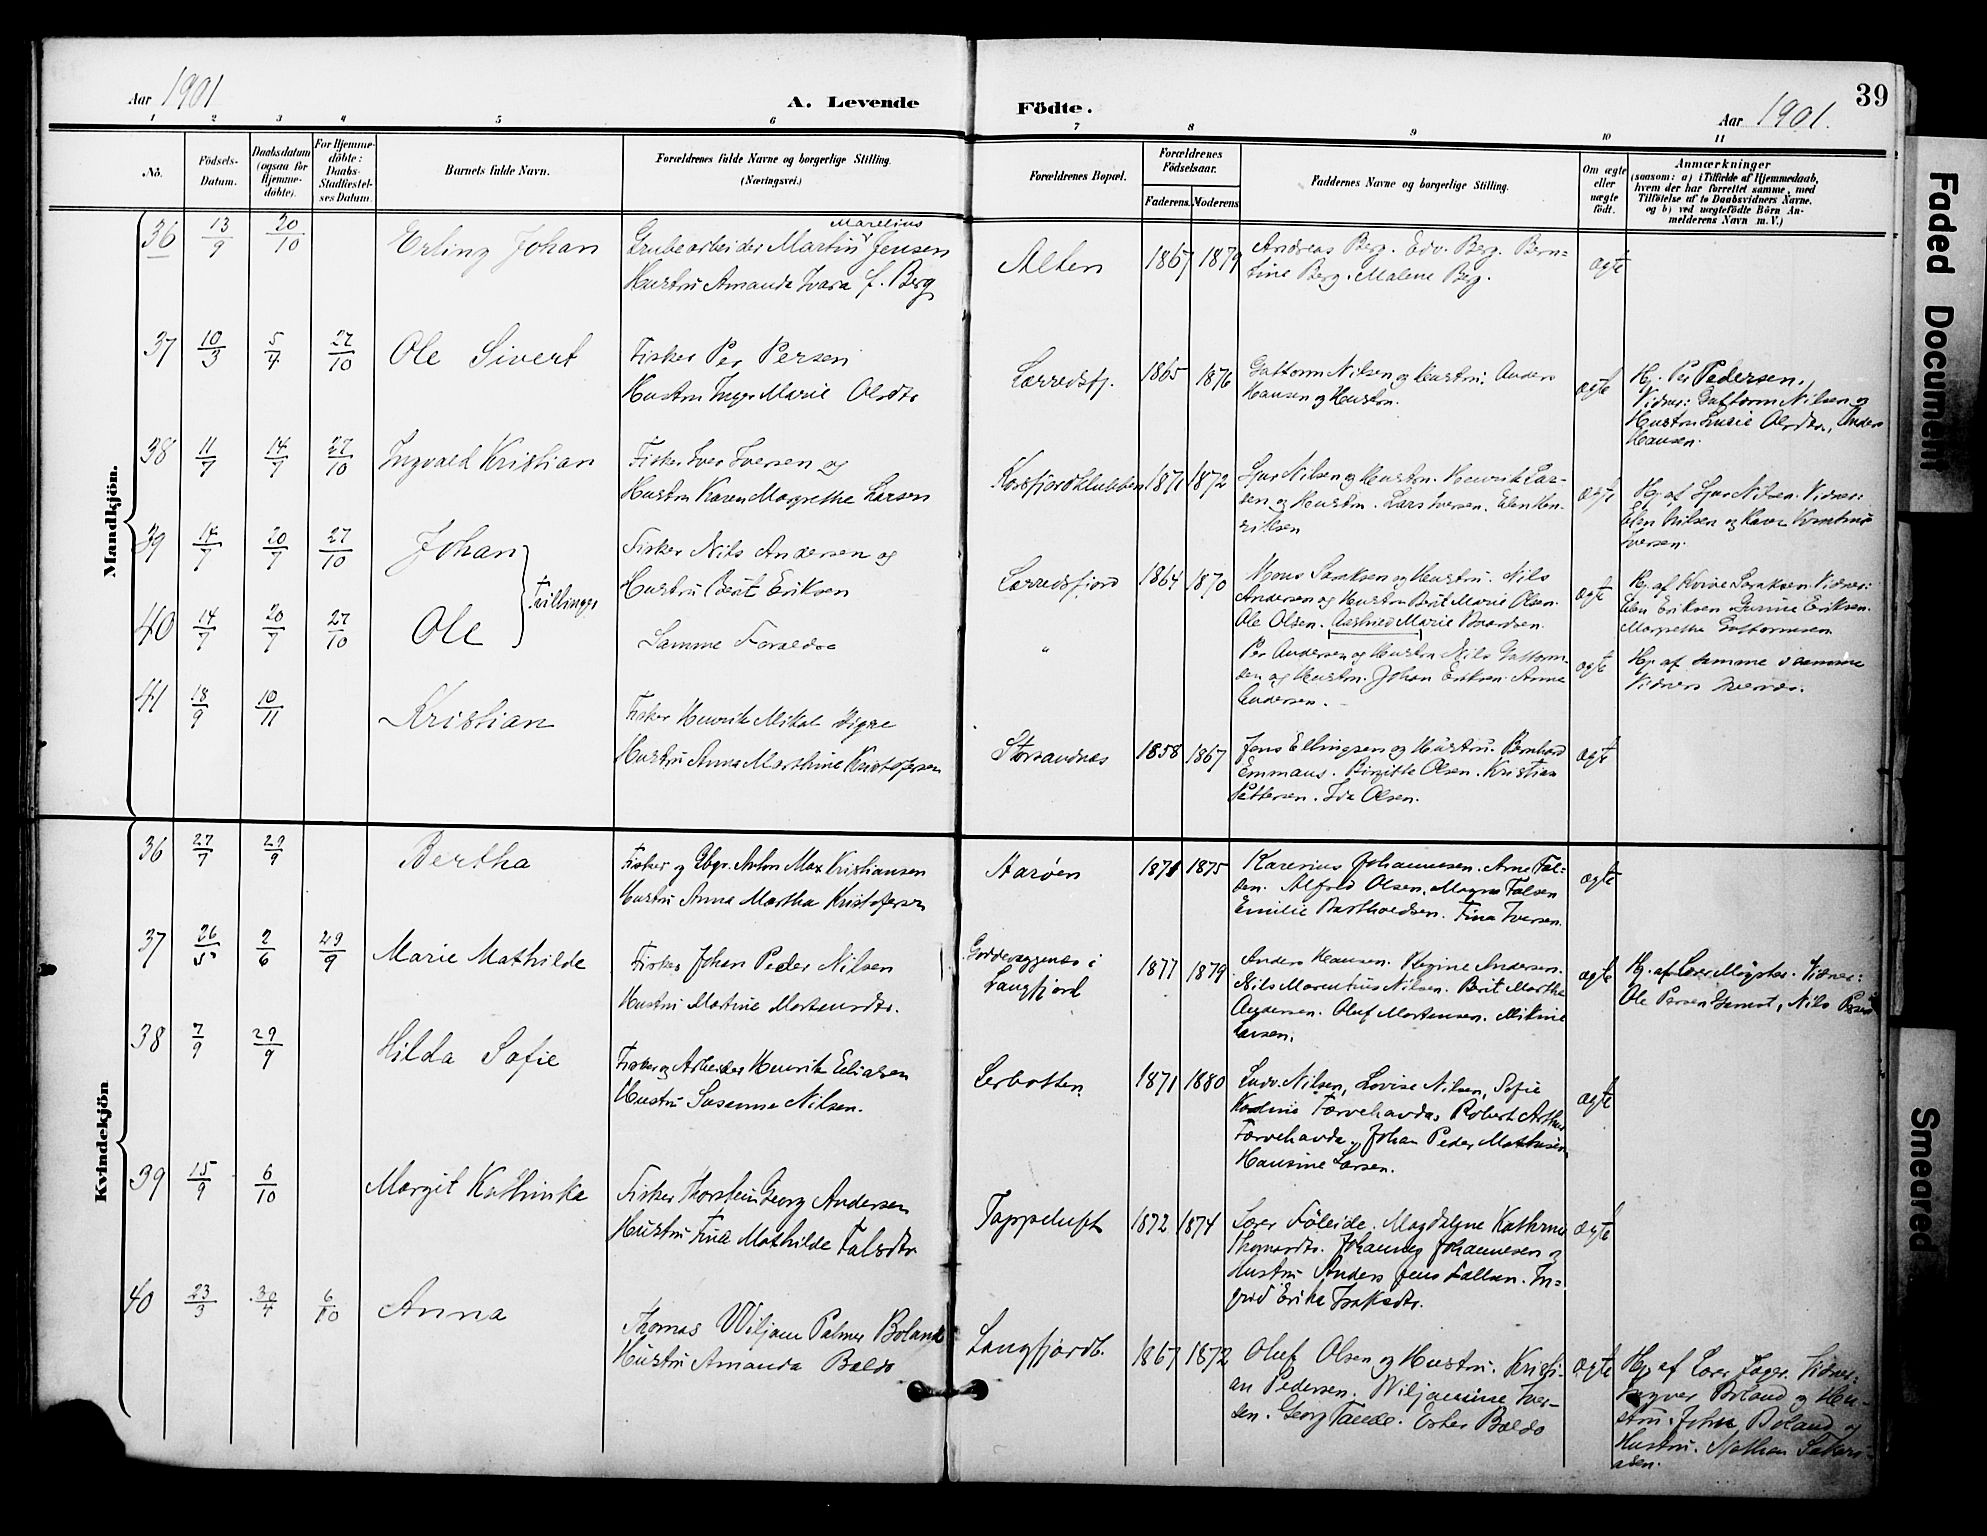 Aar 1901
A. Levende
Födte.
Aar 1901.
39
1 2 3 4 5 6 7 8 9 10 11
No.
Födsels-
Datum.
Daabsdatum
(ogsaa for
Hjemme-
döbte).
For Hjemme-
döbte:
Daabs-
Stadfæstel-
ses Datum.
Barnets fulde Navn.
Forældrenes fulde Navne og borgerlige Stilling.
(Næringsvei.)
Forældrenes Bopæl.
Forældrenes
Födselsaar.
Faderens. Moderens.
Faddernes Navne og borgerlige Stilling.
Om ægte
eller
uægte
födt.
Anmærkninger
(saasom: a) i Tilfælde af Hjemmedaab,
hvem der har forrettet samme, med
Tilföielse af to Daabsvidners Navne,
og b) ved uægtefödte Börn An-
melderens Navn m. V.)
Mandkjön.
36 13/9 20/10 Erling Johan
Marelius
Grubearbeider Martin Jensen
Hustru Amanda Ivara f. Berg
Alten 1867 1879
Andreas Berg. Edv. Berg. Bern-
tine Berg. Malene Berg.
ægte
37 10/3 5/4 27/10 Ole Sivert
Fisker Per Persen
Hustru Inger Marie Olsdtr
Lerredsfj. 1865 1876
Guttorm Nilsen og Hustru. Anders
Hansen og Hustru.
ægte
Hj. Per Pedersen.
Vidner: Guttorm Nilsen og
Hustru Olsdtr., Anders
Hansen.
38 11/7 14/7 27/10 Ingvald Kristian
Fisker Iver Iversen og
Hustru Karen Margrethe Larsen
Korsfjordklubben 1871 1872
Nilsen og Hustru. Henrik Lar-
sen og Hustru. Lars Iversen. Elen Hen-
riksen
ægte
Hj. af Nilsen. Vidner:
Elen Nilsen og
Iversen.
39 14/7 20/7 27/10 Johan
Trillinger
Fisker Nils Andersen og
Hustru Berit Eriksen
Lerredsfjord 1864 1870
Mons Isaksen og Hustru. Nils
Andersen og Hustru Berit Marie Olsen.
Ole Olsen. Marie Baardsen.
ægte
Hj. af Isaksen. Vidner:
Elen Eriksen Eriksen.
Margrethe Guttormsen
40 14/7 20/7 27/10 Ole
Samme Forældre
"
Per Andersen og Hustru Nils Guttorm-
sen og Hustru. Johan Eriksen. Anne
Andersen.
ægte
Hj. af samme samme
Vidners
41 18/9 10/11 Kristian
Fisker Henrik Mikal
Hustru Anna Marthine Kristofersen
Storsandnes 1858 1867
Jens Ellingsen og Hustru. Bernhard
Emmaus. Birgitte Olsen. Kristian
Pettersen. Ida Olsen.
ægte
Kvindekjön
36 27/7 29/9 Bertha
Fisker og Gbgr. Anton Max Kristiansen
Hustru Anna Martha Kristofersen
Aarøen 1871 1875
Karenius Johannesen. Arne Fal-
sen. Alfred Olsen. Magna Falsen
Emilie Bartholdsen. Tina Iversen.
ægte
37 26/5 2/6 29/9 Marie Mathilde
Fisker Johan Peder Nilsen
Hustru Martine Mortensdtr.
i
Langfjord 1877 1879
Anders Hansen. Regine Andersen.
Nils Marentius Nilsen. Berit Marthe
Andersen. Oluf Mortensen. Mikine
Larsen.
ægte
Hj. af Lærer Vidner:
Ole Persen Gamst, Nils Persen
38 7/9 29/9 Hilda Sofie
Fisker og Arbeider Henrik Eliasen
Hustru Susanna Nilsen.
Lerbotten 1871 1880
Ludv. Nilsen, Lovise Nilsen, Sofie
Robert Arthur
Johan Peder Mathisen
Hansine Larsen.
ægte
39 15/9 6/10 Margit Kathinka
Fisker Thorstein Georg Andersen
Hustru Tina Mathilde Falsdtr
Tappeluft 1872 1874
Lærer Føleide. Magdalene Kathrine
Thomasdtr. Johannes Johannesen og
Hustru Anders Jens Fallsen. In-
grid Erika Isaksdtr.
ægte
40 23/3 30/4 6/10 Anna
Thomas Wiljam Palmer Boland
Hustru Amanda Baldo
Langfjordb. 1867 1872
Oluf Olsen og Hustru. Kristi-
an Pedersen. Wiljamine Iver-
sen. Georg Tande. Ester Baldo
ægte
Hj. af Lærer Jager. Vidner:
Ingver Boland og Hu-
stru. John Boland og
Hustru. Nathan Sakari-
asen.
Faded Document
Smeared